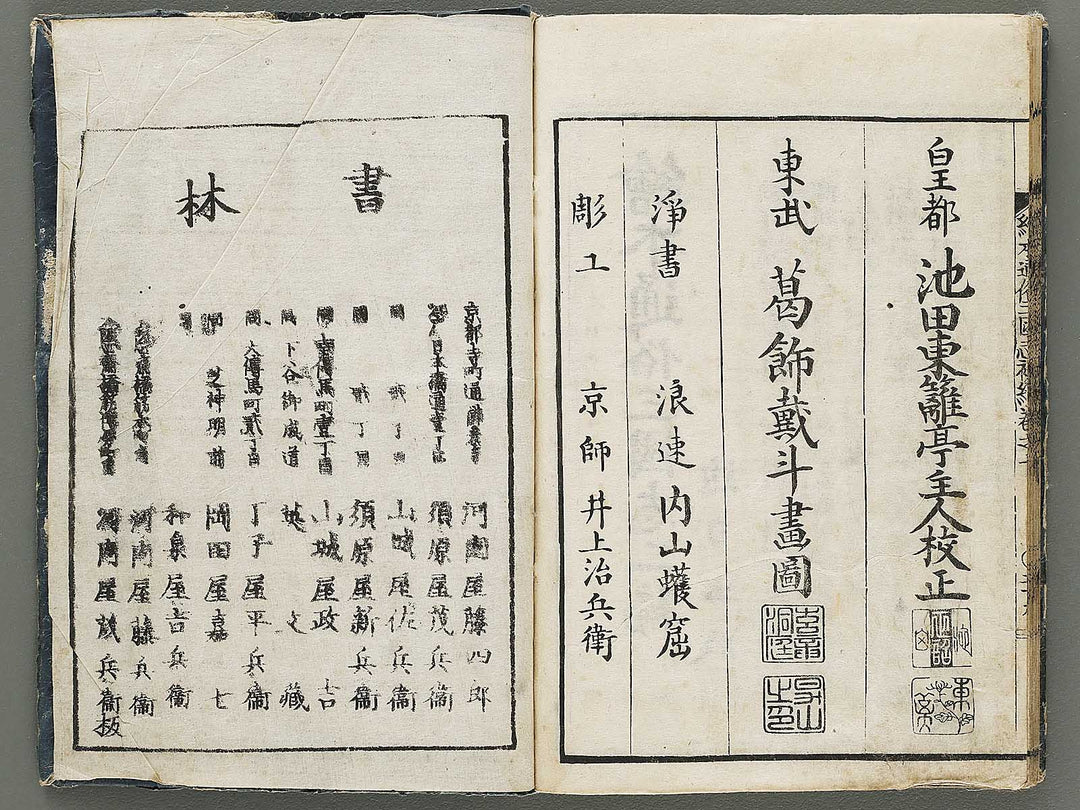 皇都 池田東籬亭主人校正
東武 葛飾戴斗畫圖
淨書 浪速 内山蠖窟
彫工 京師 井上治兵衛
書林
京都寺町通 河内屋藤四郎
日本橋通壹丁目 須原屋茂兵衛
同 貳丁目 山城屋佐兵衛
同 貳丁目 須原屋新兵衛
山城屋政吉
同 下谷御成道 英文藏
同 大傳馬町貳丁目 丁子屋平兵衛
同 芝神明前 岡田屋嘉七
同 和泉屋吉兵衛
河内屋藤兵衛
河内屋茂兵衛板